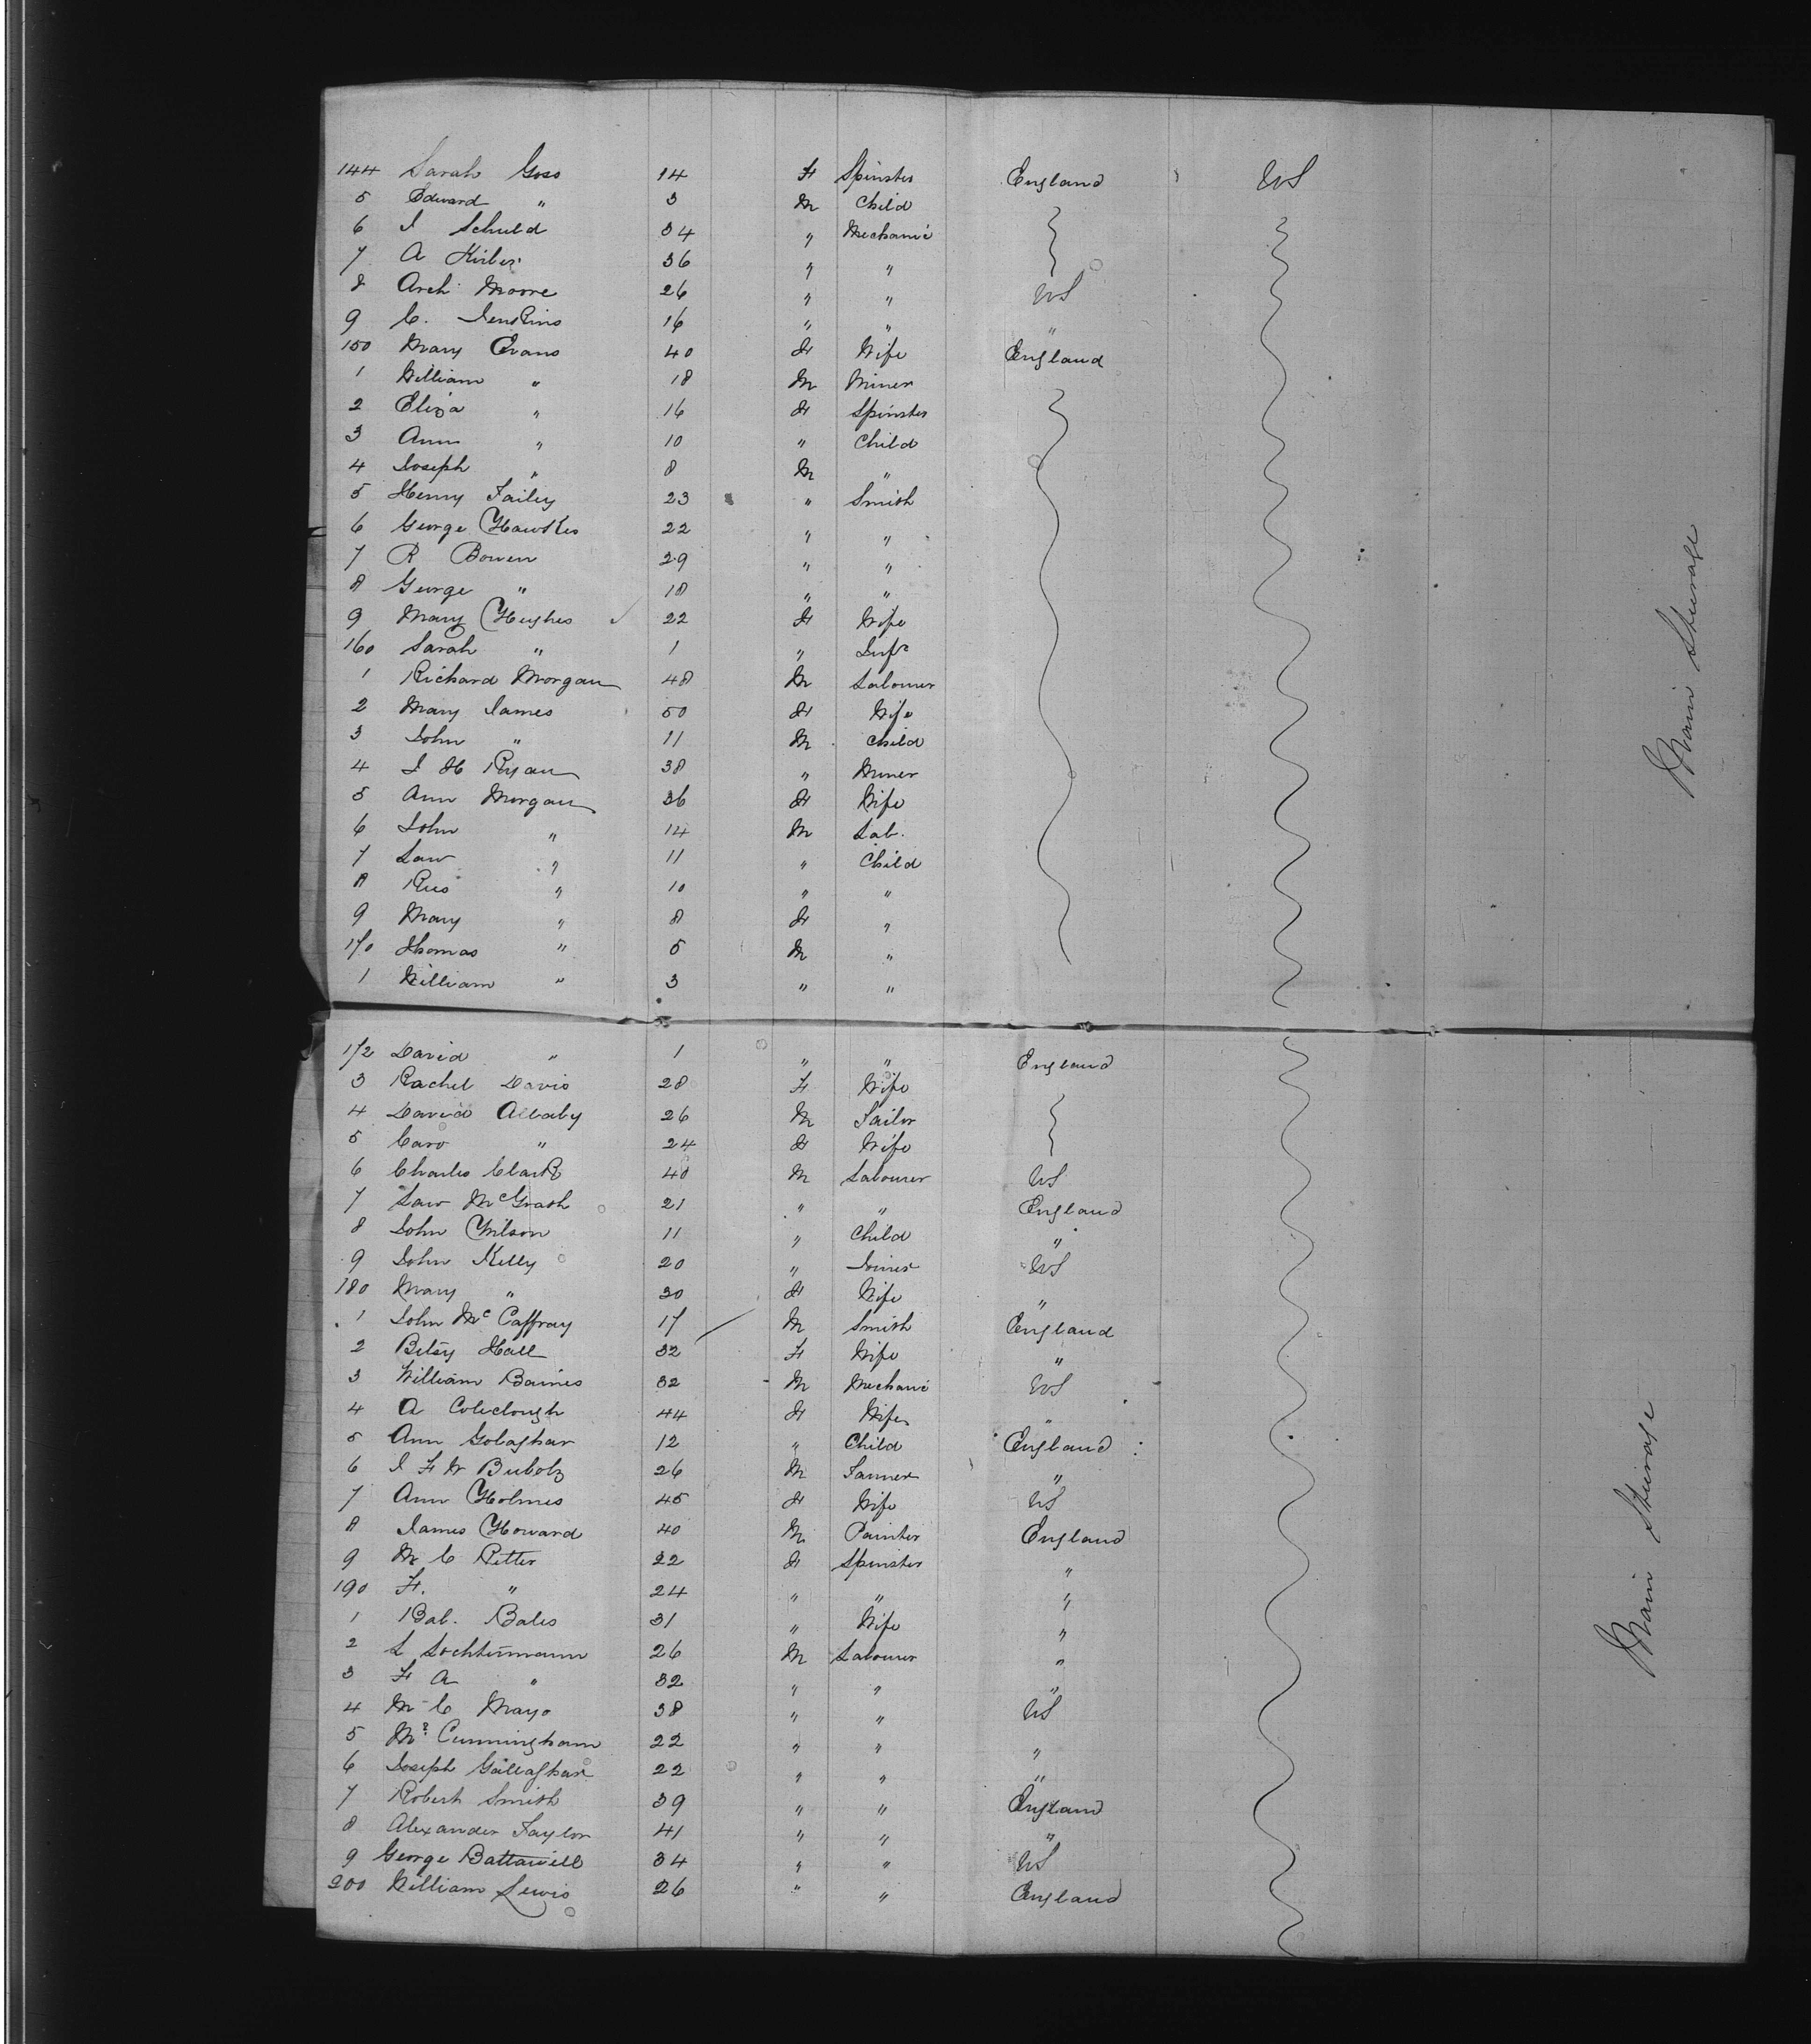 144 Sarah Goss 14 F Spinster England US
5 Edward " 3 M Child
6 J Schuld 34 " Mechanic
7 A Kirber 36 " "
8 Arch Moore 26 " " US
9 C. Jenkins 16 " " "
150 Mary Evans 40 F Wife England
1 William " 18 M Miner
2 Eliza " 16 F Spinster
3 Ann " 10 " Child
4 Joseph " 8 M "
5 Henry Failey 23 " Smith
6 George Hawkes 22 " "
7 R Bowen 29 " "
8 George " 18 " "
9 Mary Hughes 22 F Wife
160 Sarah " 1 " Inft
1 Richard Morgan 48 M Labourer
2 Mary James 50 F Wife
3 John " 11 M Child
4 J H Ryan 38 " Miner
5 Ann Morgan 36 F Wife
6 John " 14 M Lab.
7 Law " 11 " Child
8 Rees " 10 " "
9 Mary " 8 F "
170 Thomas " 5 M "
1 William " 3 " "
Main Steerage
172 David " 1 " " England
3 Rachel Davis 28 F Wife
4 David Allaby 26 M Tailor
5 Caro " 24 F Wife
6 Charles Clark 40 M Labourer US
7 Law McGrath 21 " " England
8 John Wilson 11 " Child "
9 John Kelly 20 " Joiner US
180 Mary " 30 F Wife "
1 John McCaffray 17 M Smith England
2 Betsy Hall 32 F Wife "
3 William Baines 32 M Mechanic US
4 A Coleclough 44 F Wife "
5 Ann Golaghar 12 " Child England
6 J F W Bubolz 26 M Farmer "
7 Ann Holmes 45 F Wife US
8 James Howard 40 M Painter England
9 M C Ritter 22 F Spinster "
190 F. " 24 " " "
1 Bab. Bales 31 " Wife "
2 L Lochtermann 26 M Labourer "
3 F A " 32 " " "
4 M C Mayo 38 " " US
5 Mr Cunningham 22 " " "
6 Joseph Gallaghar 22 " " "
7 Robert Smith 39 " " England
8 Alexander Taylor 41 " " "
9 George Battawill 34 " " US
200 William Lewis 26 " " England
Main Steerage